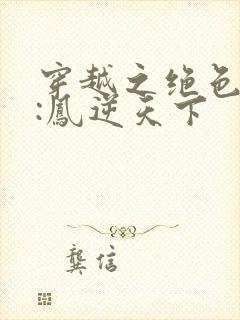 穿越之绝色
:鳳逆天下
龔信